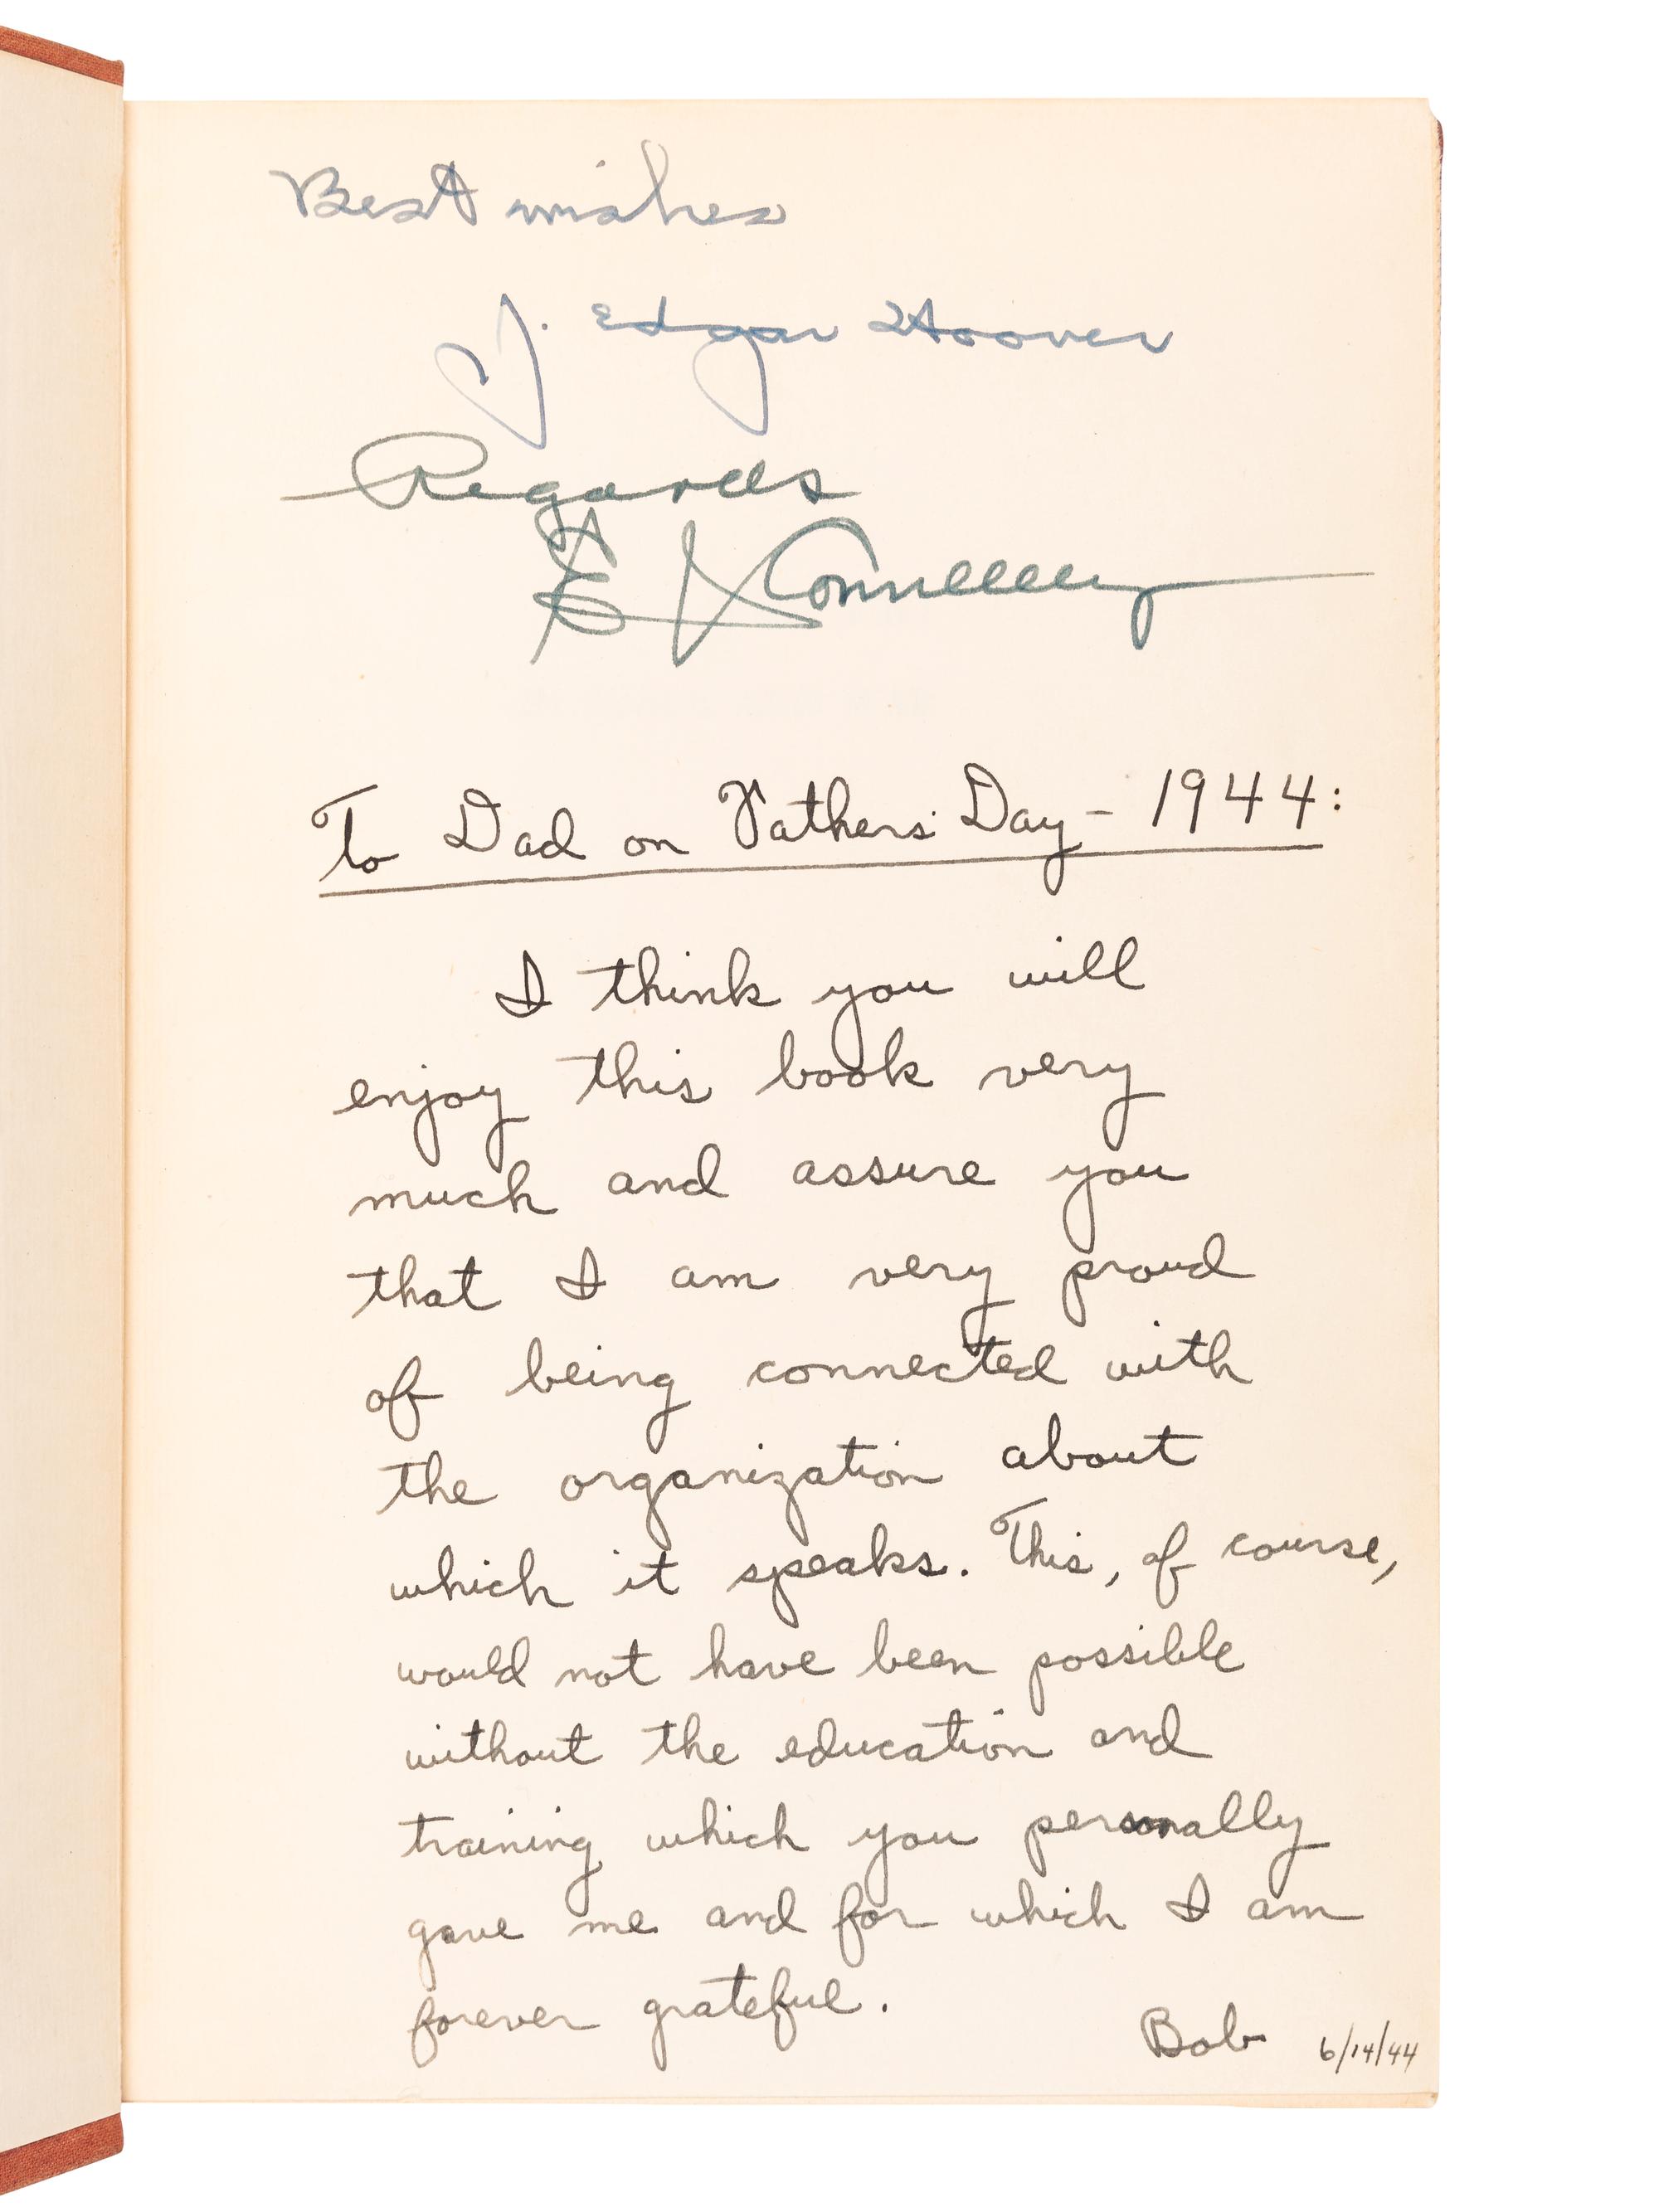 Best wishes
J. Edgar Hoover
Regards
E J Connelley
To Dad on Fathers' Day - 1944:
I think you will
enjoy this book very
much and assure you
that I am very proud
of being connected with
the organization about
which it speaks. This, of course,
would not have been possible
without the education and
training which you personally
gave me and for which I am
forever grateful.
Bob 6/14/44